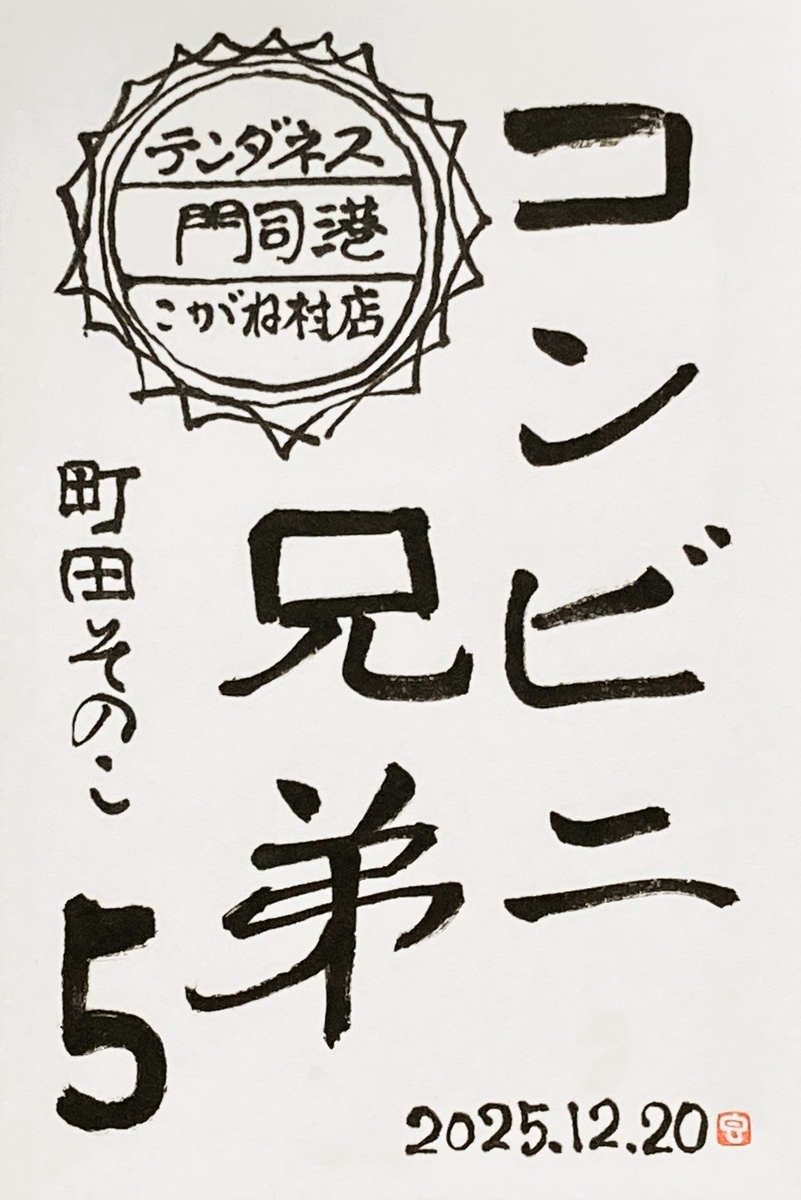 コンビニ
兄弟
テンダネス
門司港
こがね村店
町田そのこ
5
2025.12.20